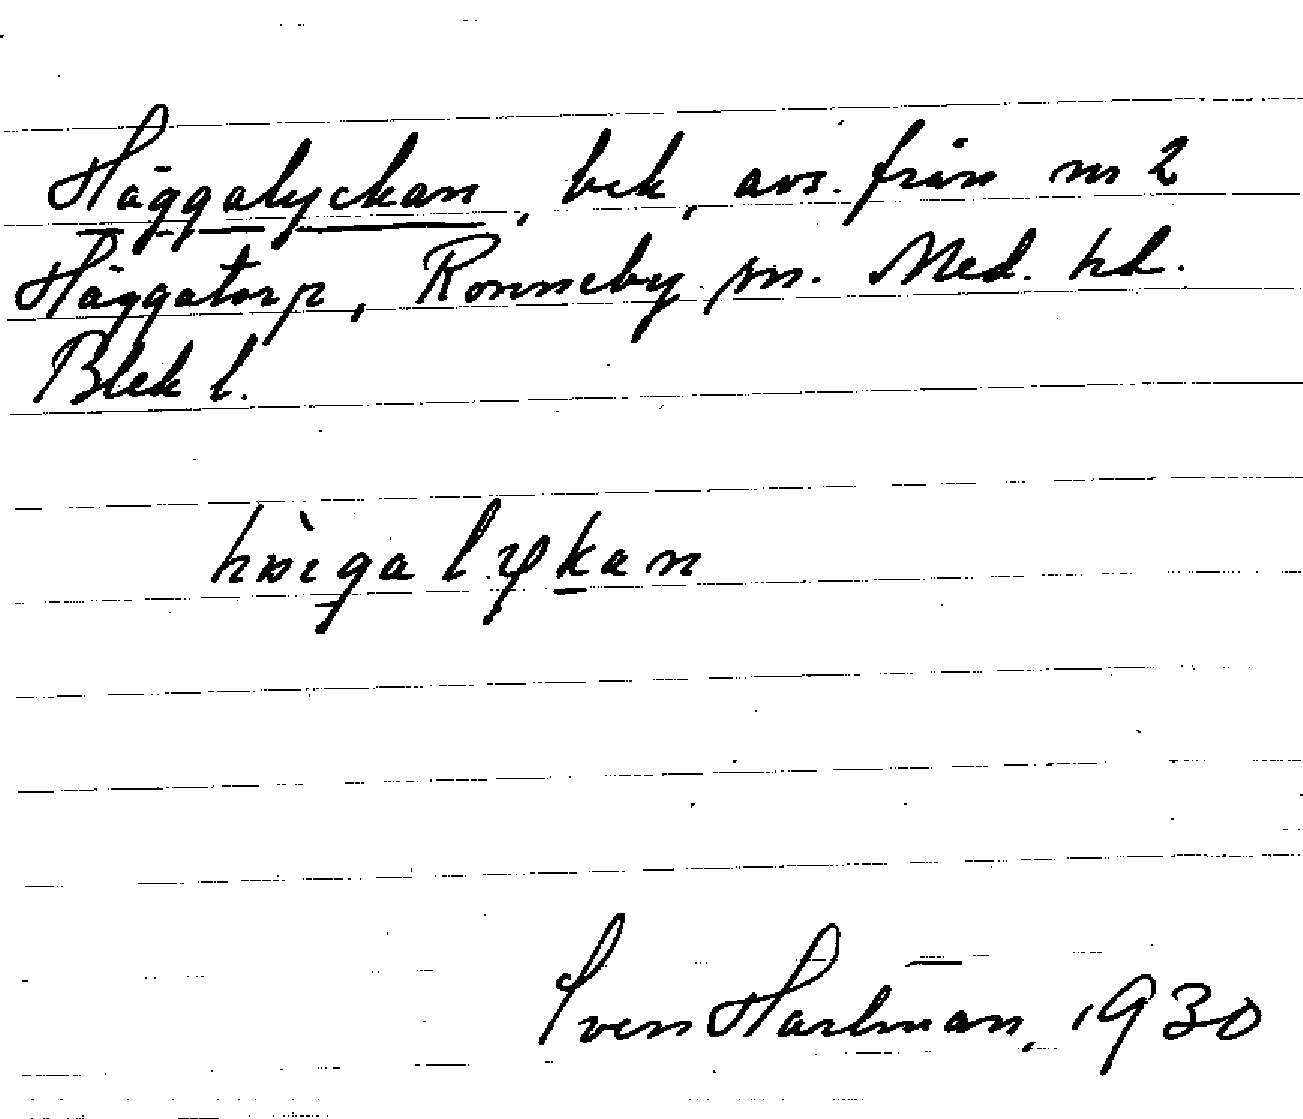 Häggalyckan, bek, avs. från nr 2
Häggatorp, Ronneby sn. Med. hd.
Blek l.
Sven Hartman, 1930